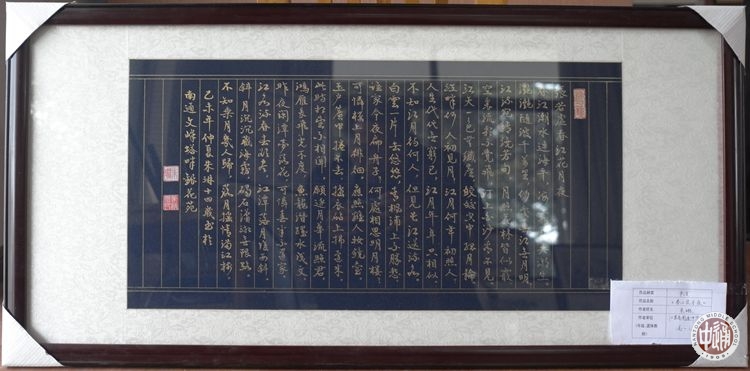 張若虛春江花月夜
春江潮水連海平海上明月共潮生
灩灩隨波千萬里何處春江無月明
江流宛轉繞芳甸月照花林皆似霰
空里流霜不覺飛汀上白沙看不見
江天一色無纖塵皎皎空中孤月輪
江畔何人初見月江月何年初照人
人生代代無窮已江月年年只相似
不知江月待何人但見長江送流水
白雲一片去悠悠青楓浦上不勝愁
誰家今夜扁舟子何處相思明月樓
可憐樓上月徘徊應照離人妝鏡臺
玉戶簾中捲不去搗衣砧上拂還來
此時相望不相聞願逐月華流照君
鴻雁長飛光不度魚龍潛躍水成文
昨夜閑潭夢落花可憐春半不還家
江水流春去欲盡江潭落月復西斜
斜月沉沉藏海霧碣石瀟湘無限路
不知乘月幾人歸落月搖情滿江樹
己未年仲夏朱琳十四歲書於
南通文峰塔畔銀花苑
作品种类
作品名称 《春江花月夜》
作者姓名 朱琳
作者单位
NANTONG MIDDLE SCHOOL
1909